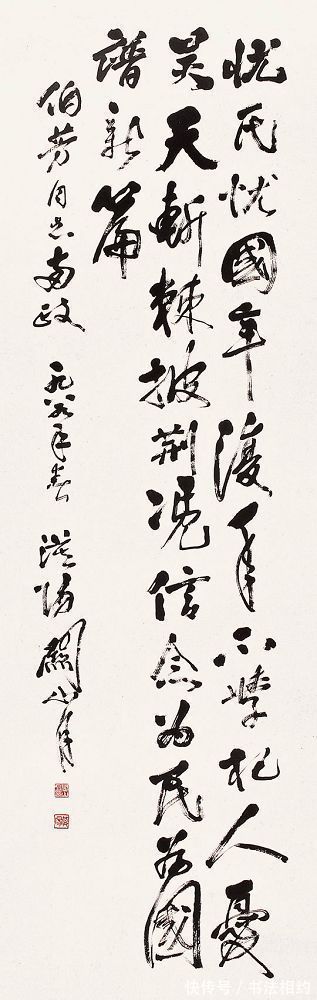 忧民忧國年復年不學杞人憂
昊天斬棘披荆凭信念为民为國
譜新篇
伯芳同志政 一九八九年春 漠陽關山月
快传号 / 书法相约